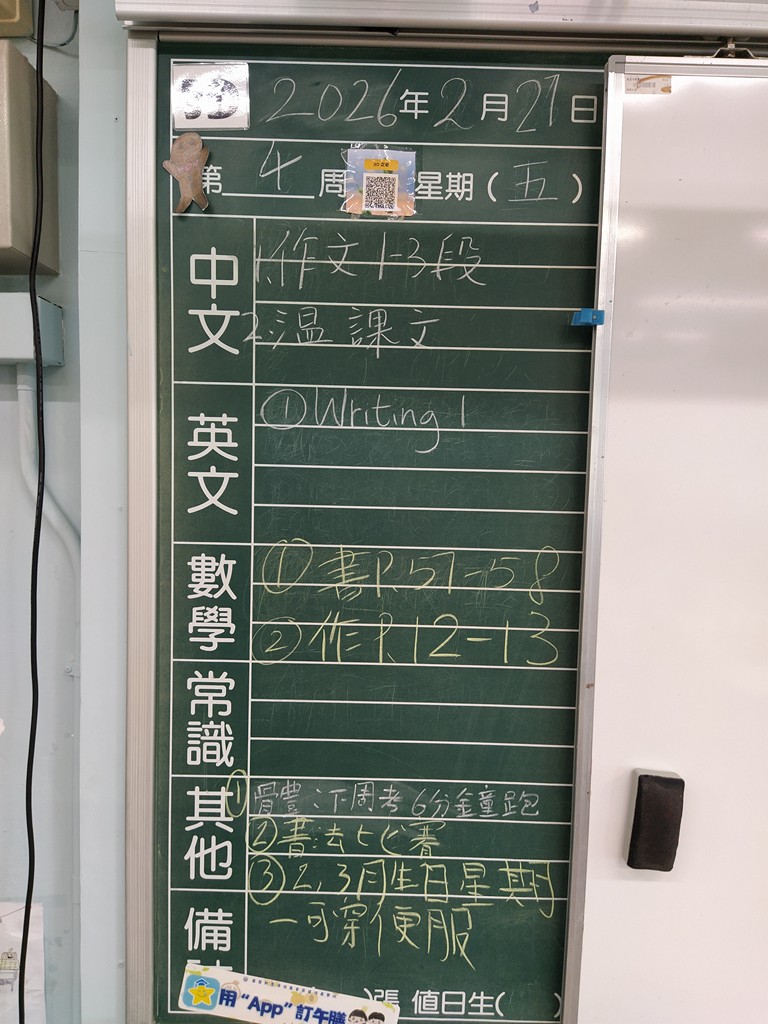 2026年2月27日
第 4 周 星期(五)
中文
1.作文1-3段
2.溫課文
英文
① Writing 1
數學
① 書P.57-58
② 作P.12-13
常識
其他
① 體:下周考6分鐘跑
② 書法比賽
③ 2,3月生日星期
一可穿便服
備
張 值日生( )
用“App”訂午膳